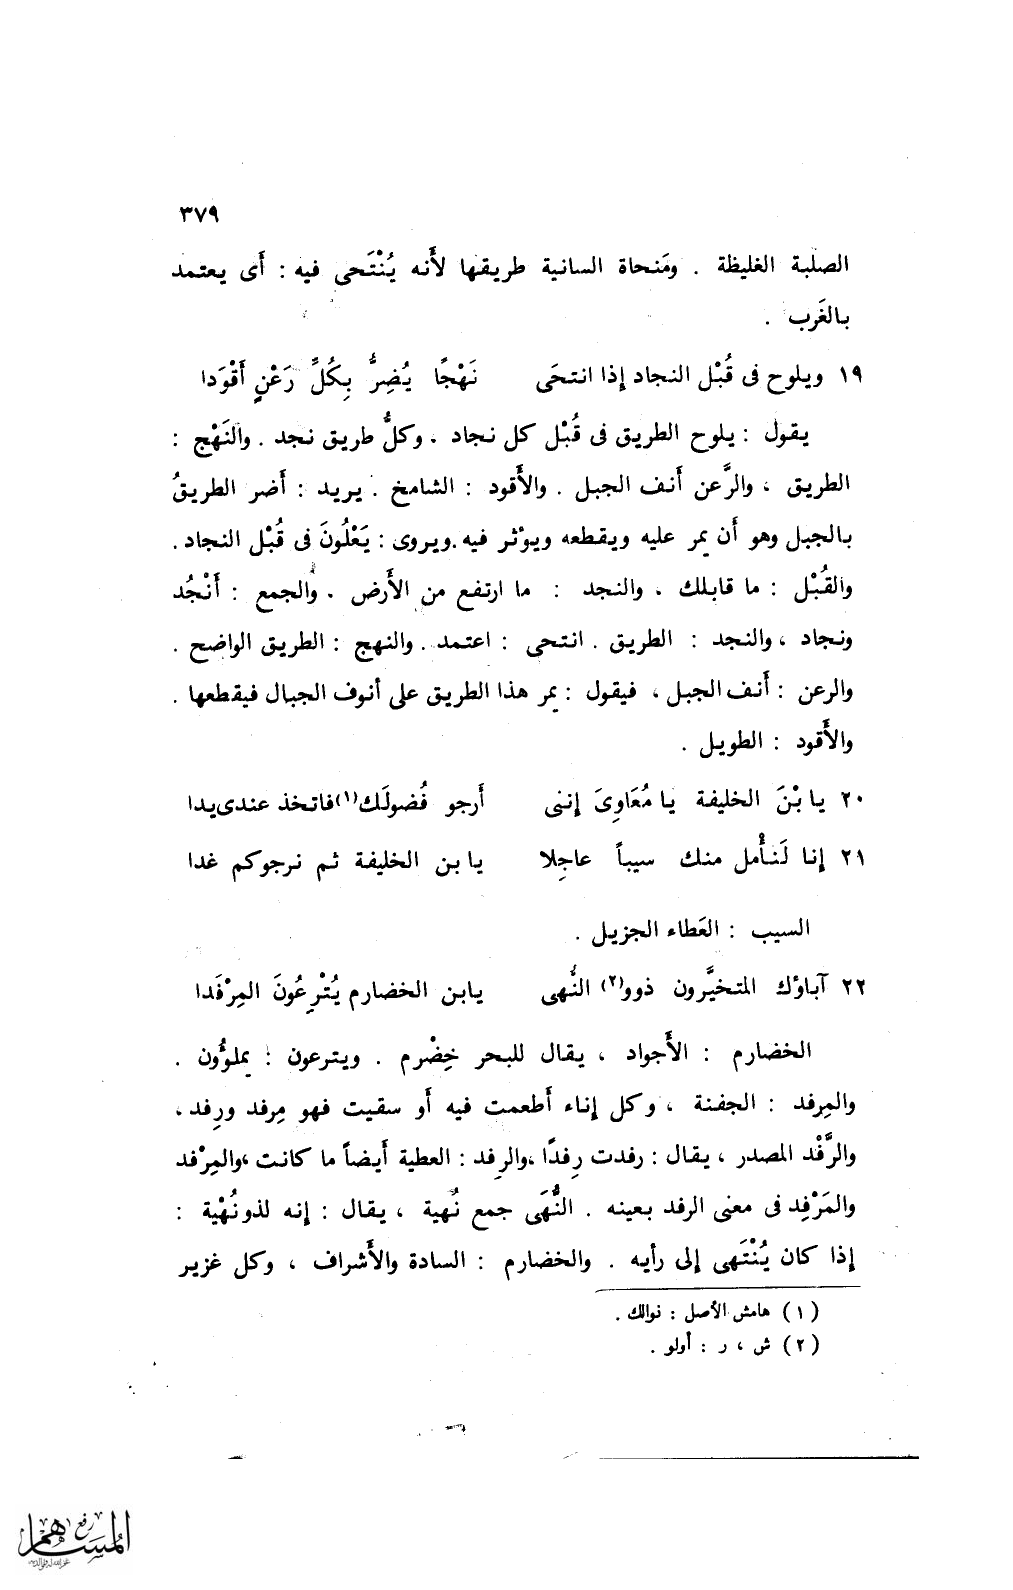 ٣٧٩
الصلبة الغليظة . ومَنحاة السانية طريقها لأَنه يُنْتَحى فيه : أَى يعتمد
بالغَرب .
١٩ ويلوح فى قُبْل النجاد إذا انتحَى نَهْجًا يُضِرُّ بِكُلِّ رَعْنٍ أَقْوَدا
يقول : يلوح الطريق فى قُبْل كل نجاد . وكلُّ طريق نجد . والنَهْج :
الطريق ، والرَّعن أَنف الجبل . والأَقود : الشامخ . يريد : أَضر الطريقُ
بالجبل وهو أَن يمر عليه ويقطعه ويؤثر فيه . ويروى : يَعْلُونَ فى قُبْل النجاد .
والقُبْل : ما قابلك . والنجد : ما ارتفع من الأَرض . والجمع : أَنْجُد
ونجاد ، والنجد : الطريق . انتحى : اعتمد . والنهج : الطريق الواضح .
والرعن : أَنف الجبل ، فيقول : يمر هذا الطريق على أنوف الجبال فيقطعها .
والأَقود : الطويل .
٢٠ يا بْنَ الخليفة يا مُعَاوِىَ إننى أَرجو فُضولَك(١) فاتخذ عندى يدا
٢١ إنا لَنأْمل منك سيباً عاجِلا يا بن الخليفة ثم نرجوكم غدا
السيب : العَطاء الجزيل .
٢٢ آباؤك المتخيَّرون ذوو(٢) النُّهى يابن الخضارم يُتْرِعُونَ المِرْفَدا
الخضارم : الأَجواد ، يقال للبحر خِضْرم . ويترعون : يملؤُون .
والمِرفد : الجفنة ، وكل إناء أَطعمت فيه أَو سقيت فهو مِرفد ورِفد ،
والرَّفْد المصدر ، يقال : رفدت رِفدًا ، والرِفد : العطية أَيضاً ما كانت ، والمِرْفد
والمَرْفِد فى معنى الرفد بعينه . النُّهَى جمع نُهية ، يقال : إنه لذو نُهْية :
إذا كان يُنْتَهى إلى رأيه . والخضارم : السادة والأَشراف ، وكل غزير
(١) هامش الأصل : نوالك .
(٢) ش ، ر : أولو .
رفع المساهم